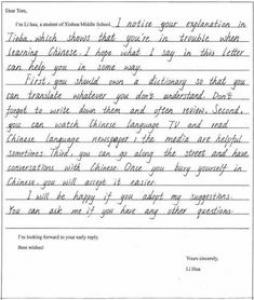 Dear Tom,
I'm Li hua, a student of Xinhua Middle School. I notice your explanation in
Tieba, which shows that you're in trouble when
learning Chinese. I hope what I say in this letter
can help you in some way.
First, you should own a dictionary so that you
can translate whatever you don't understand. Don't
forget to write down them and often review. Second,
you can watch Chinese language TV and read
Chinese language newspaper; the media are helpful
sometimes. Third, you can go along the street and have
conversations with Chinese. Once you busy yourself in
Chinese you will accept it easier.
I will be happy if you adopt my suggestions.
You can ask me if you have any other questions.
I'm looking forward to your early reply.
Best wishes!
Yours sincerely,
Li Hua